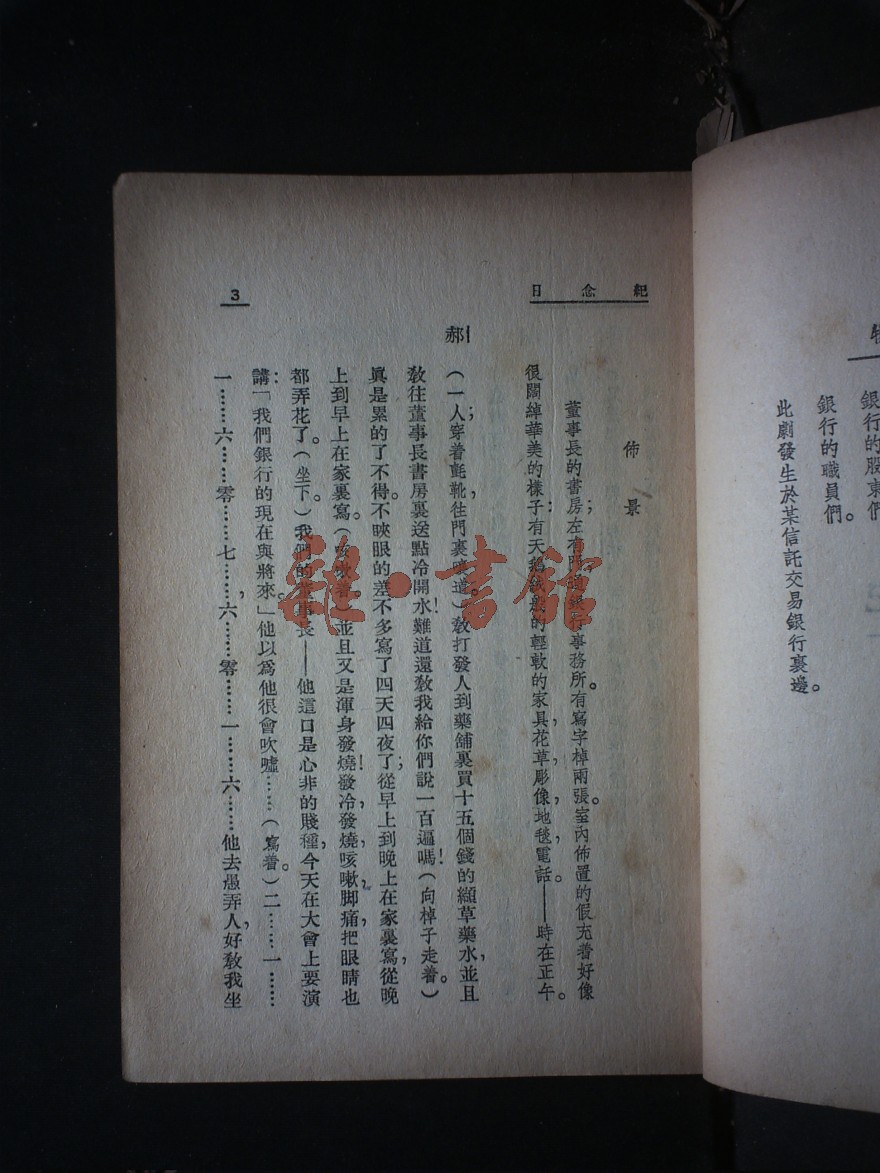 銀行的股東們
銀行的職員們。
此劇發生於某信託交易銀行裏邊。
紀念日
佈景
董事長的書房;左右門通銀行事務所。有寫字棹兩張。室內佈置的假充着好像
很闊綽華美的樣子:有天鵝絨的輕軟的家具,花草,彫像,地毯,電話。——時在正午。
郝 (一人;穿着氈靴,往門裏嚷道。)敎打發人到藥舖裏買十五個錢的纈草藥水,並且
敎往董事長書房裏送點冷開水!難道還敎我給你們說一百遍嗎!(向棹子走着。)
眞是累的了不得。不映眼的差不多寫了四天四夜了;從早上到晚上在家裏寫,從晚
上到早上在家裏寫。(咳嗽着)並且又是渾身發燒!發冷,發燒,咳嗽,脚痛,把眼睛也
都弄花了。(坐下。)我們的董事長——他這口是心非的賤種,今天在大會上要演
講:「我們銀行的現在與將來。」他以爲他很會吹噓……(寫着。)二……一……
一……六……零……七……,六……零……一……六……他去愚弄人,好敎我坐
3
雜·書館